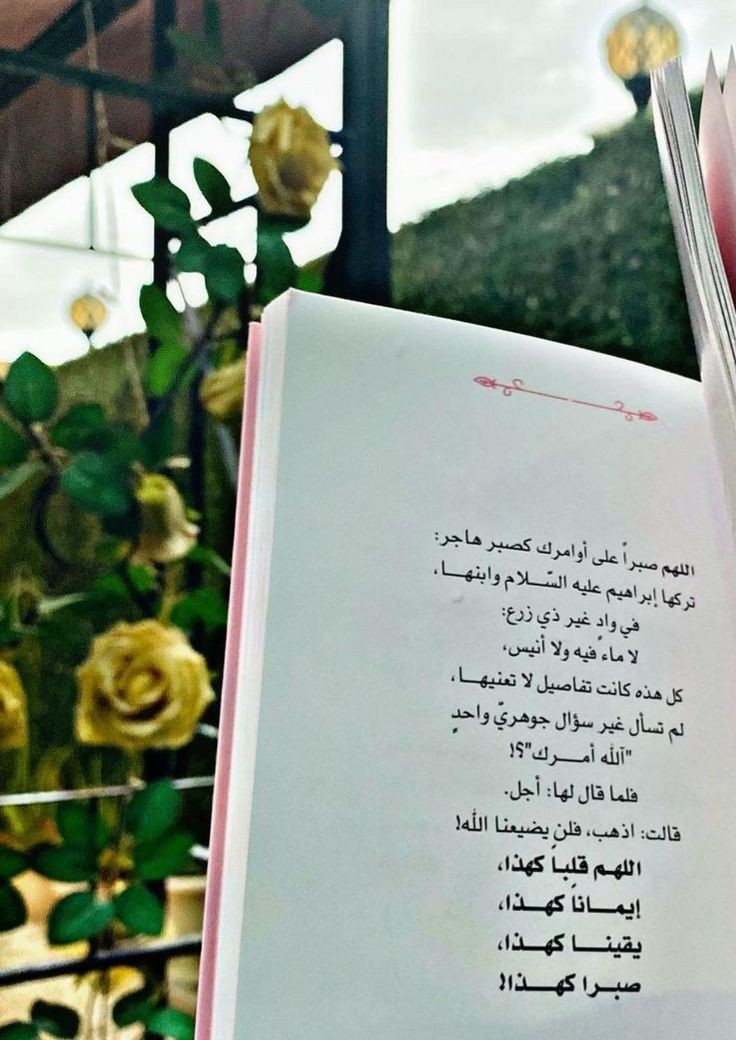 اللهم صبراً على أوامرك كصبر هاجر:
تركها إبراهيم عليه السّـلام وابنهـا،
في وادٍ غير ذي زرع:
لا ماء فيه ولا أنيس،
كل هذه كانت تفاصيل لا تعنيهـا،
لم تسأل غير سؤال جوهريّ واحدٍ
"آلله أمـرك"؟!
فلما قال لها: أجل.
قالت: اذهب، فلن يضيعنا الله!
اللهم قلباً كهذا،
إيمـاناً كهـذا،
يقينـا كهـذا،
صبـرا كهـذا!